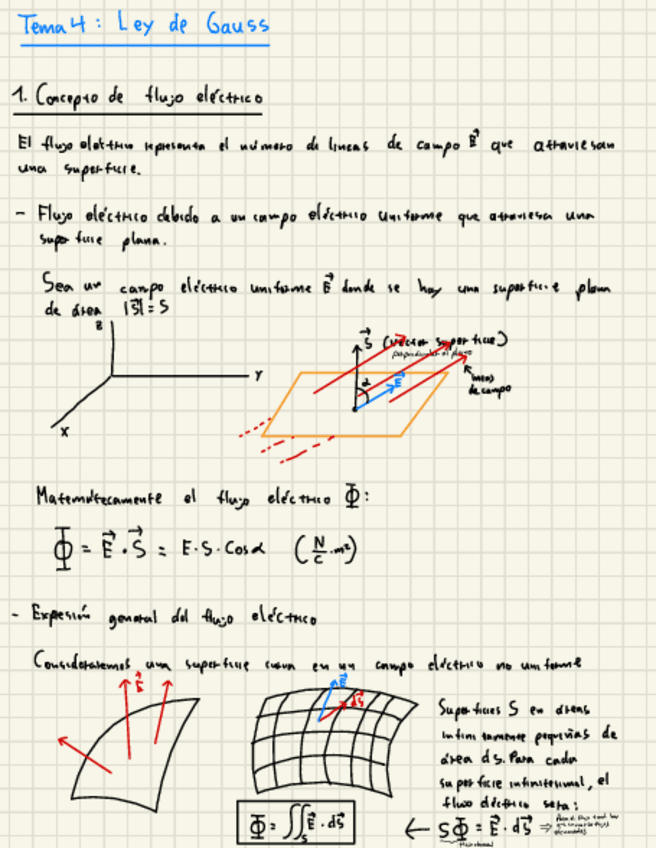 Tema 4: Ley de Gauss
1. Concepto de flujo eléctrico
El flujo eléctrico representa el número de líneas de campo E⃗ que atraviesan
una superficie.
- Flujo eléctrico debido a un campo eléctrico uniforme que atraviesa una
superficie plana.
Sea un campo eléctrico uniforme E⃗ donde se hay una superficie plana
de área |S⃗| = S
z
y
x
S⃗ (vector superficie)
perpendicular al plano
α
E⃗
líneas
de campo
Matemáticamente el flujo eléctrico Φ:
Φ = E⃗ · S⃗ = E · S · Cos α (N/C · m²)
- Expresión general del flujo eléctrico
Consideraremos una superficie curva en un campo eléctrico no uniforme
E⃗
E⃗
dS⃗
Superficies S en áreas
infinitamente pequeñas de
área ds. Para cada
superficie infinitesimal, el
flujo eléctrico será:
Φ = ∬_S E⃗ · dS⃗
← SΦ = E⃗ · dS⃗ ⇒